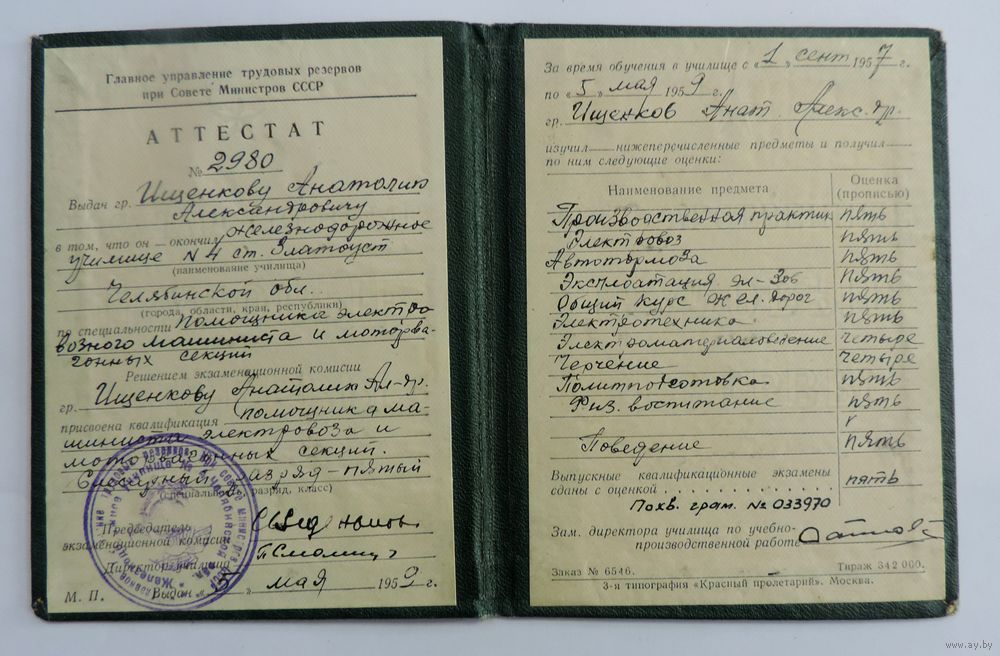 Главное управление трудовых резервов
при Совете Министров СССР
АТТЕСТАТ
№ 2980
Выдан гр. Ищенкову Анатолию
Александровичу
в том, что он — окончил железнодорожное
училище N 4 ст. Златоуст
(наименование училища)
Челябинской обл.
(города, области, края, республики)
по специальности Помощника электро
возного машиниста и моторва-
гонных секций
Решением экзаменационной комиссии
гр. Ищенкову Анатолию Ал-др.
присвоена квалификация помощника ма-
шиниста электровоза и
моторвагонных секций.
Слесарный разряд-пятый
(специальность, разряд, класс)
Председатель
экзаменационной комиссии
Директор училища
М. П. Выдан „5" мая 1959 г.
За время обучения в училище с „1" сент 1957 г.
по „5" мая 1959 г.
гр. Ищенков Анат. Алекс.др.
изучил — нижеперечисленные предметы и получил —
по ним следующие оценки:
Наименование предмета Оценка (прописью)
Производственная практик пять
Электровоз пять
Автотормоза пять
Эксплоатация эл-воз пять
Общий курс жел. дорог пять
Электротехника пять
Электроматериаловедение четыре
Черчение четыре
Политподготовка пять
Физ. воспитание пять
Поведение пять
Выпускные квалификационные экзамены
сданы с оценкой . . . . . . . . . . . . . . . пять
Похв. грам. № 033970
Зам. директора училища по учебно-
производственной работе
Заказ № 6546. Тираж 342 000.
3-я типография «Красный пролетарий». Москва.
www.ay.by